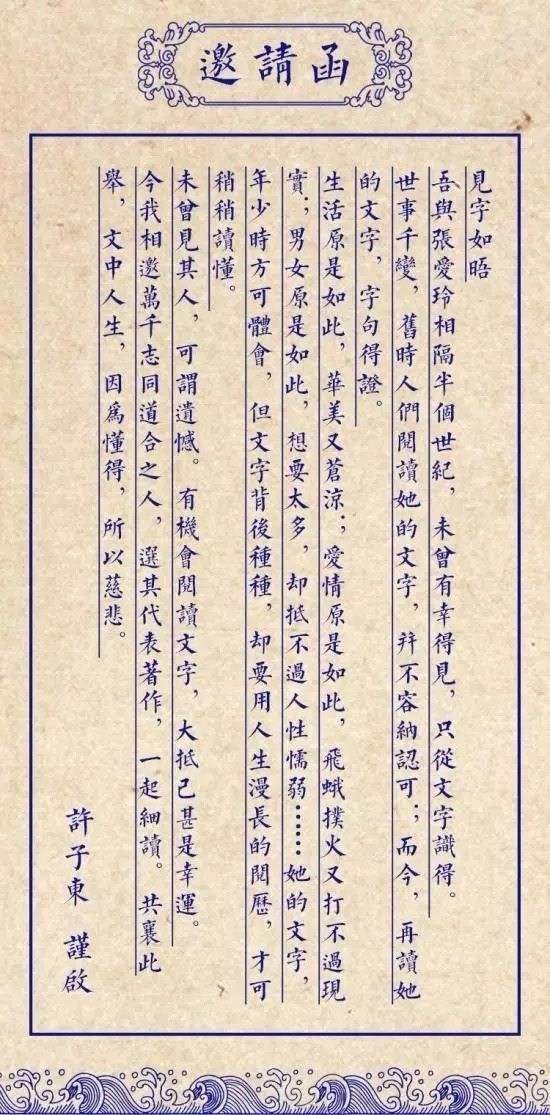 邀請函
見字如晤
吾與張愛玲相隔半個世紀，未曾有幸得見，只從文字識得。
世事千變，舊時人們閱讀她的文字，幷不容納認可；而今，再讀她
的文字，字句得證。
生活原是如此，華美又蒼涼；愛情原是如此，飛蛾撲火又打不過現
實；男女原是如此，想要太多，却抵不過人性懦弱……她的文字，
年少時方可體會，但文字背後種種，却要用人生漫長的閱歷，才可
稍稍讀懂。
未曾見其人，可謂遺憾。有機會閱讀文字，大抵已甚是幸運。
今我相邀萬千志同道合之人，選其代表著作，一起細讀。共襄此
舉，文中人生，因爲懂得，所以慈悲。
許子東 謹啟